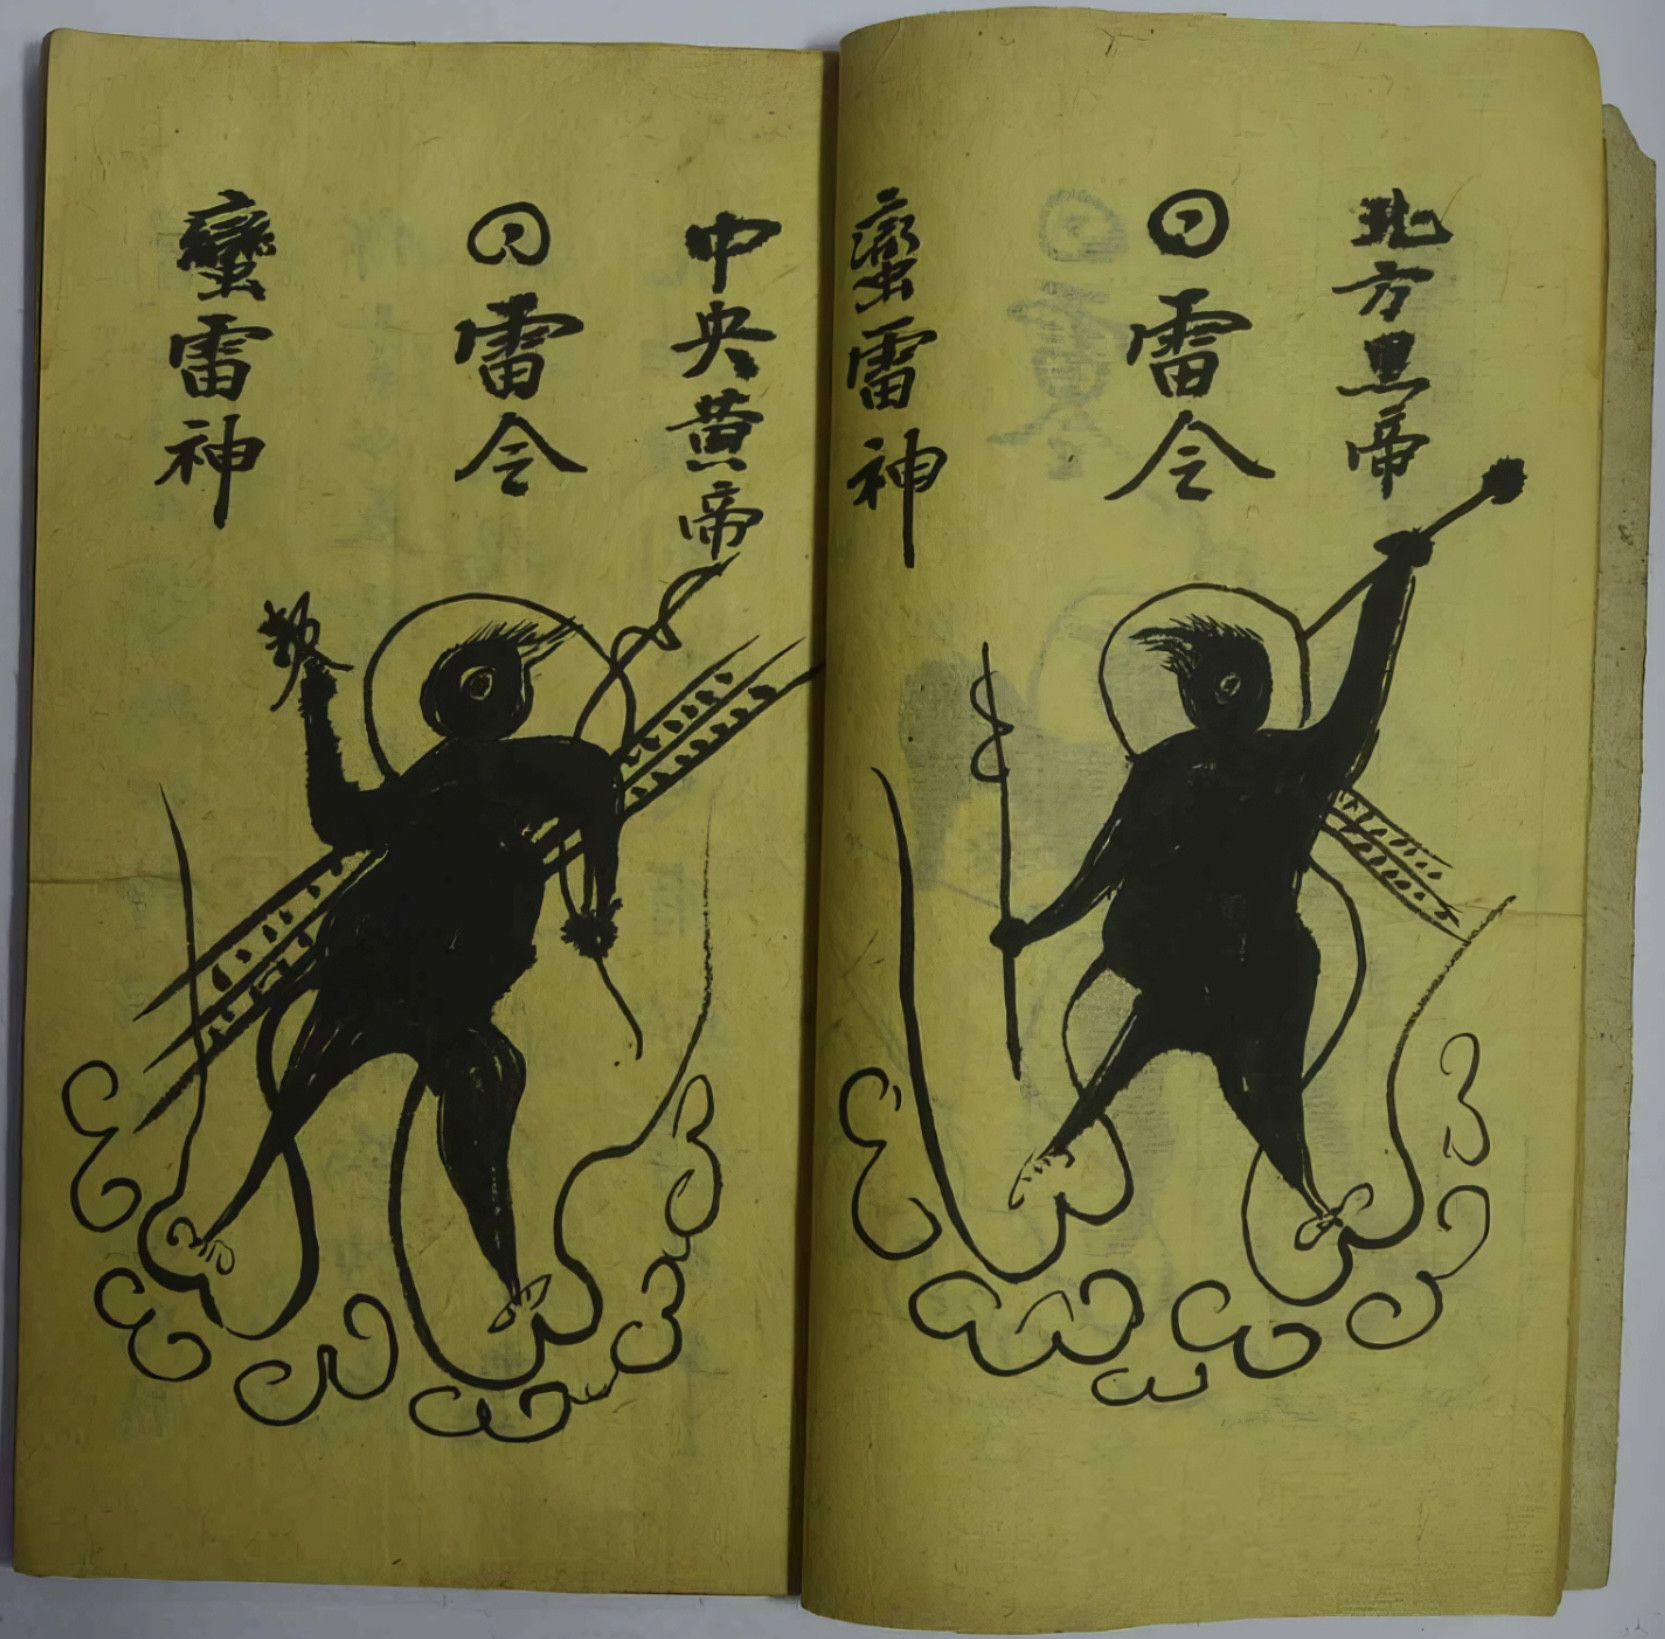 北方黑帝
雷令
蠻雷神
中央黃帝
雷令
蠻雷神